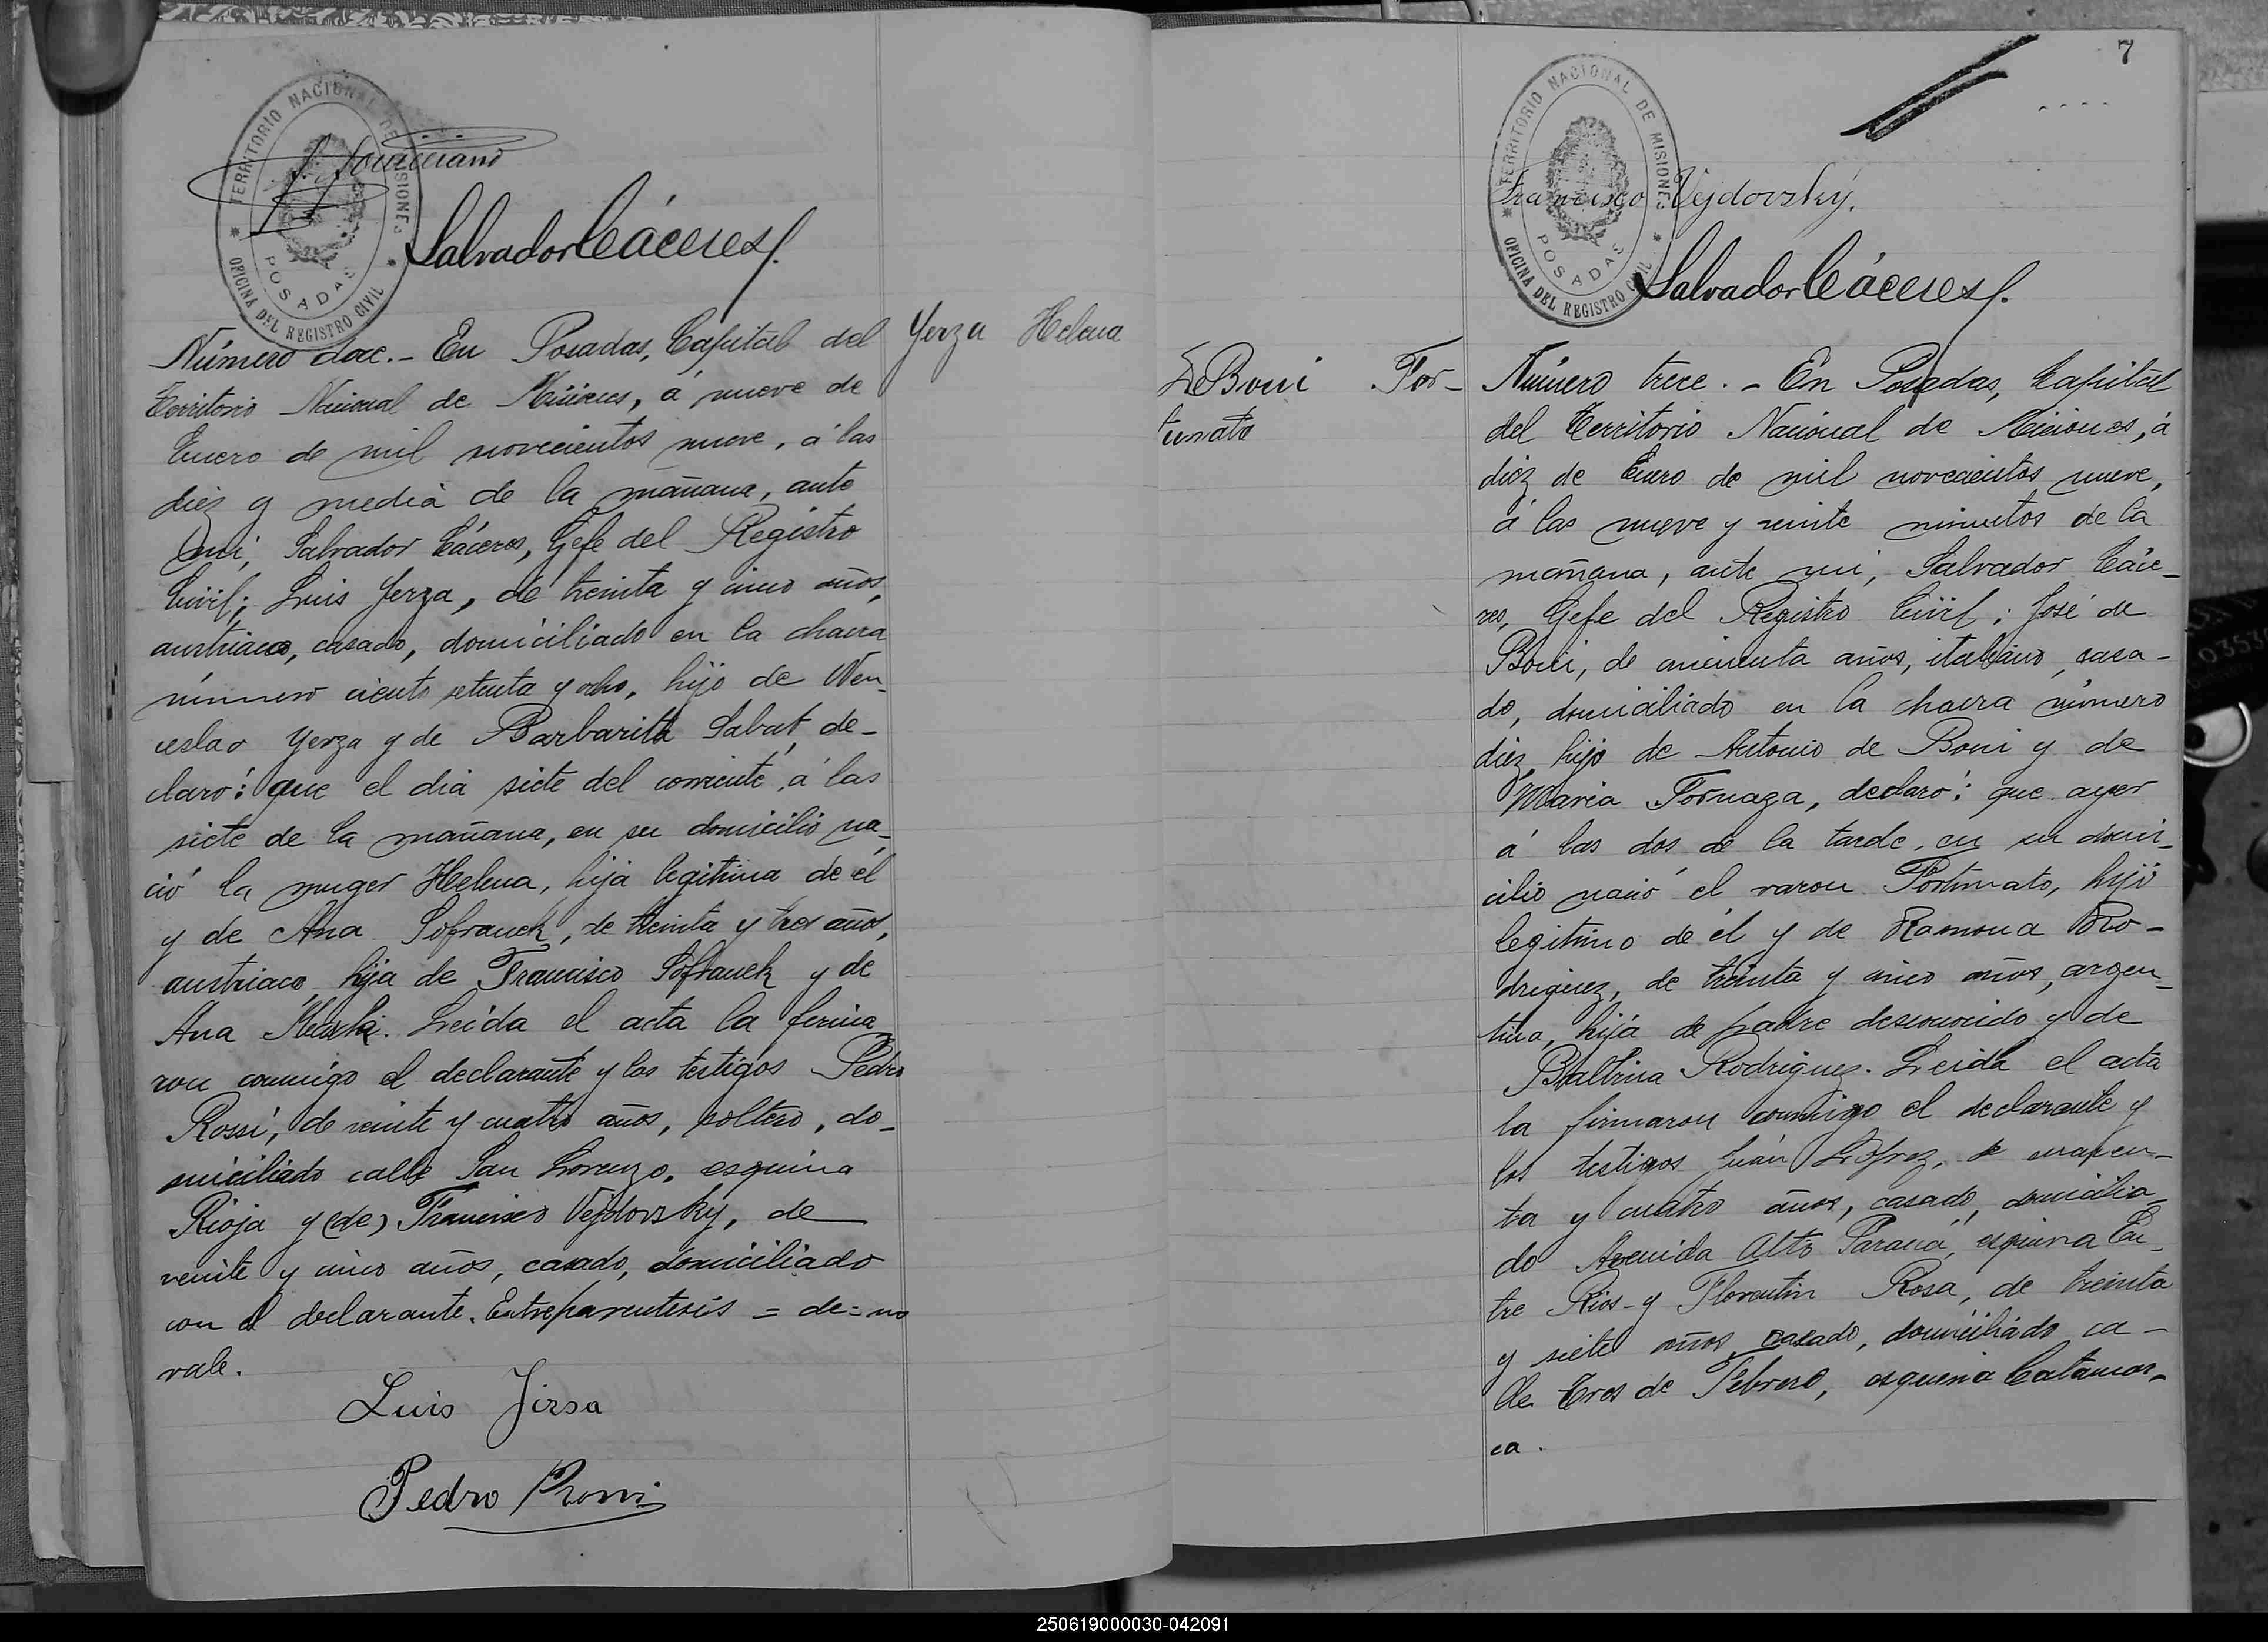 TERRITORIO NACIONAL DE MISIONES
POSADAS
OFICINA DEL REGISTRO CIVIL
Salvador Cáceres
Yerza Helena
Número doce.- En Posadas, Capital del
Territorio Nacional de Misiones, á nueve de
Enero de mil novecientos nueve, á las
diez y media de la mañana, ante
mi, Salvador Cáceres, Gefe del Registro
Civil; Luis Jerza, de treinta y cinco años,
austriaco, casado, domiciliado en la chacra
número ciento setenta y ocho, hijo de Wen-
ceslao Yerza y de Barbarita Sabat, de-
claró: que el dia siete del corriente, á las
siete de la mañana, en su domicilio na-
ció la muger Helena, hija legitima de él
y de Ana Sofranek, de treinta y tres años,
austriaco, hija de Francisco Sofranek y de
Ana. Leida el acta la firma
ron conmigo el declarante y los testigos Pedro
Rossi, de veinte y cuatro años, soltero, do-
miciliado calle San Lorenzo, esquina
Rioja y (de) Francisco Vejdovsky, de
veinte y cinco años, casado, domiciliado
con el declarante. Entreparentesis = de = no
vale.
Luis Jirsa
Pedro Rossi
7
TERRITORIO NACIONAL DE MISIONES
POSADAS
OFICINA DEL REGISTRO CIVIL
Francisco Vejdovský.
Salvador Cáceres
De Boni For-
tunato
Número trece.- En Posadas, Capital
del Territorio Nacional de Misiones, á
diez de Enero de mil novecientos nueve,
á las nueve y veinte minutos de la
mañana, ante mi, Salvador Cáce-
res, Gefe del Registro Civil; José de
Boni, de cincuenta años, italiano, casa-
do, domiciliado en la chacra número
diez, hijo de Antonio de Boni y de
Maria Fornaza, declaró: que ayer
á las dos de la tarde, en su domi-
cilio nació el varon Fortunato, hijo
legitimo de él y de Ramona Ro-
driguez, de treinta y cinco años, argen-
tina, hija de padre desconocido y de
Baltrina Rodriguez. Leida el acta
la firmaron conmigo el declarante y
los testigos Juán López, de cuaren-
ta y cuatro años, casado, domicilia-
do Avenida Alto Paraná, esquina En-
tre Rios y Florentin Rosa, de treinta
y siete años, casado, domiciliado ca-
lle Tres de Febrero, esquina Catamar-
ca.
250619000030-042091